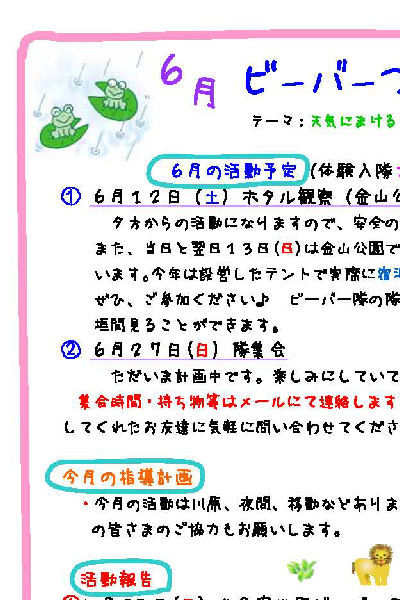 6月 ビーバーつ
テーマ：天気にまける
6月の活動予定 (体験入隊
① 6月12日（土）ホタル観察（金山公
夕方からの活動になりますので、安全の
また、当日と翌日13日(日)は金山公園で
います。今年は設営したテントで実際に宿泊
ぜひ、ご参加ください♪ ビーバー隊の隊
垣間見ることができます。
② 6月27日(日) 隊集会
ただいま計画中です。楽しみにしていて
集合時間・持ち物等はメールにて連絡します
してくれたお友達に気軽に問い合わせてくださ
今月の指導計画
・今月の活動は川原、夜間、移動などありま
の皆さまのご協力もお願いします。
活動報告